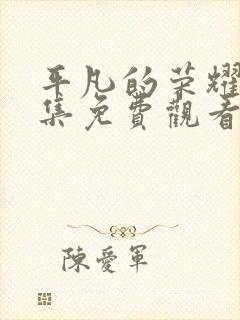 平凡的荣耀
集免費觀看
陳愛軍